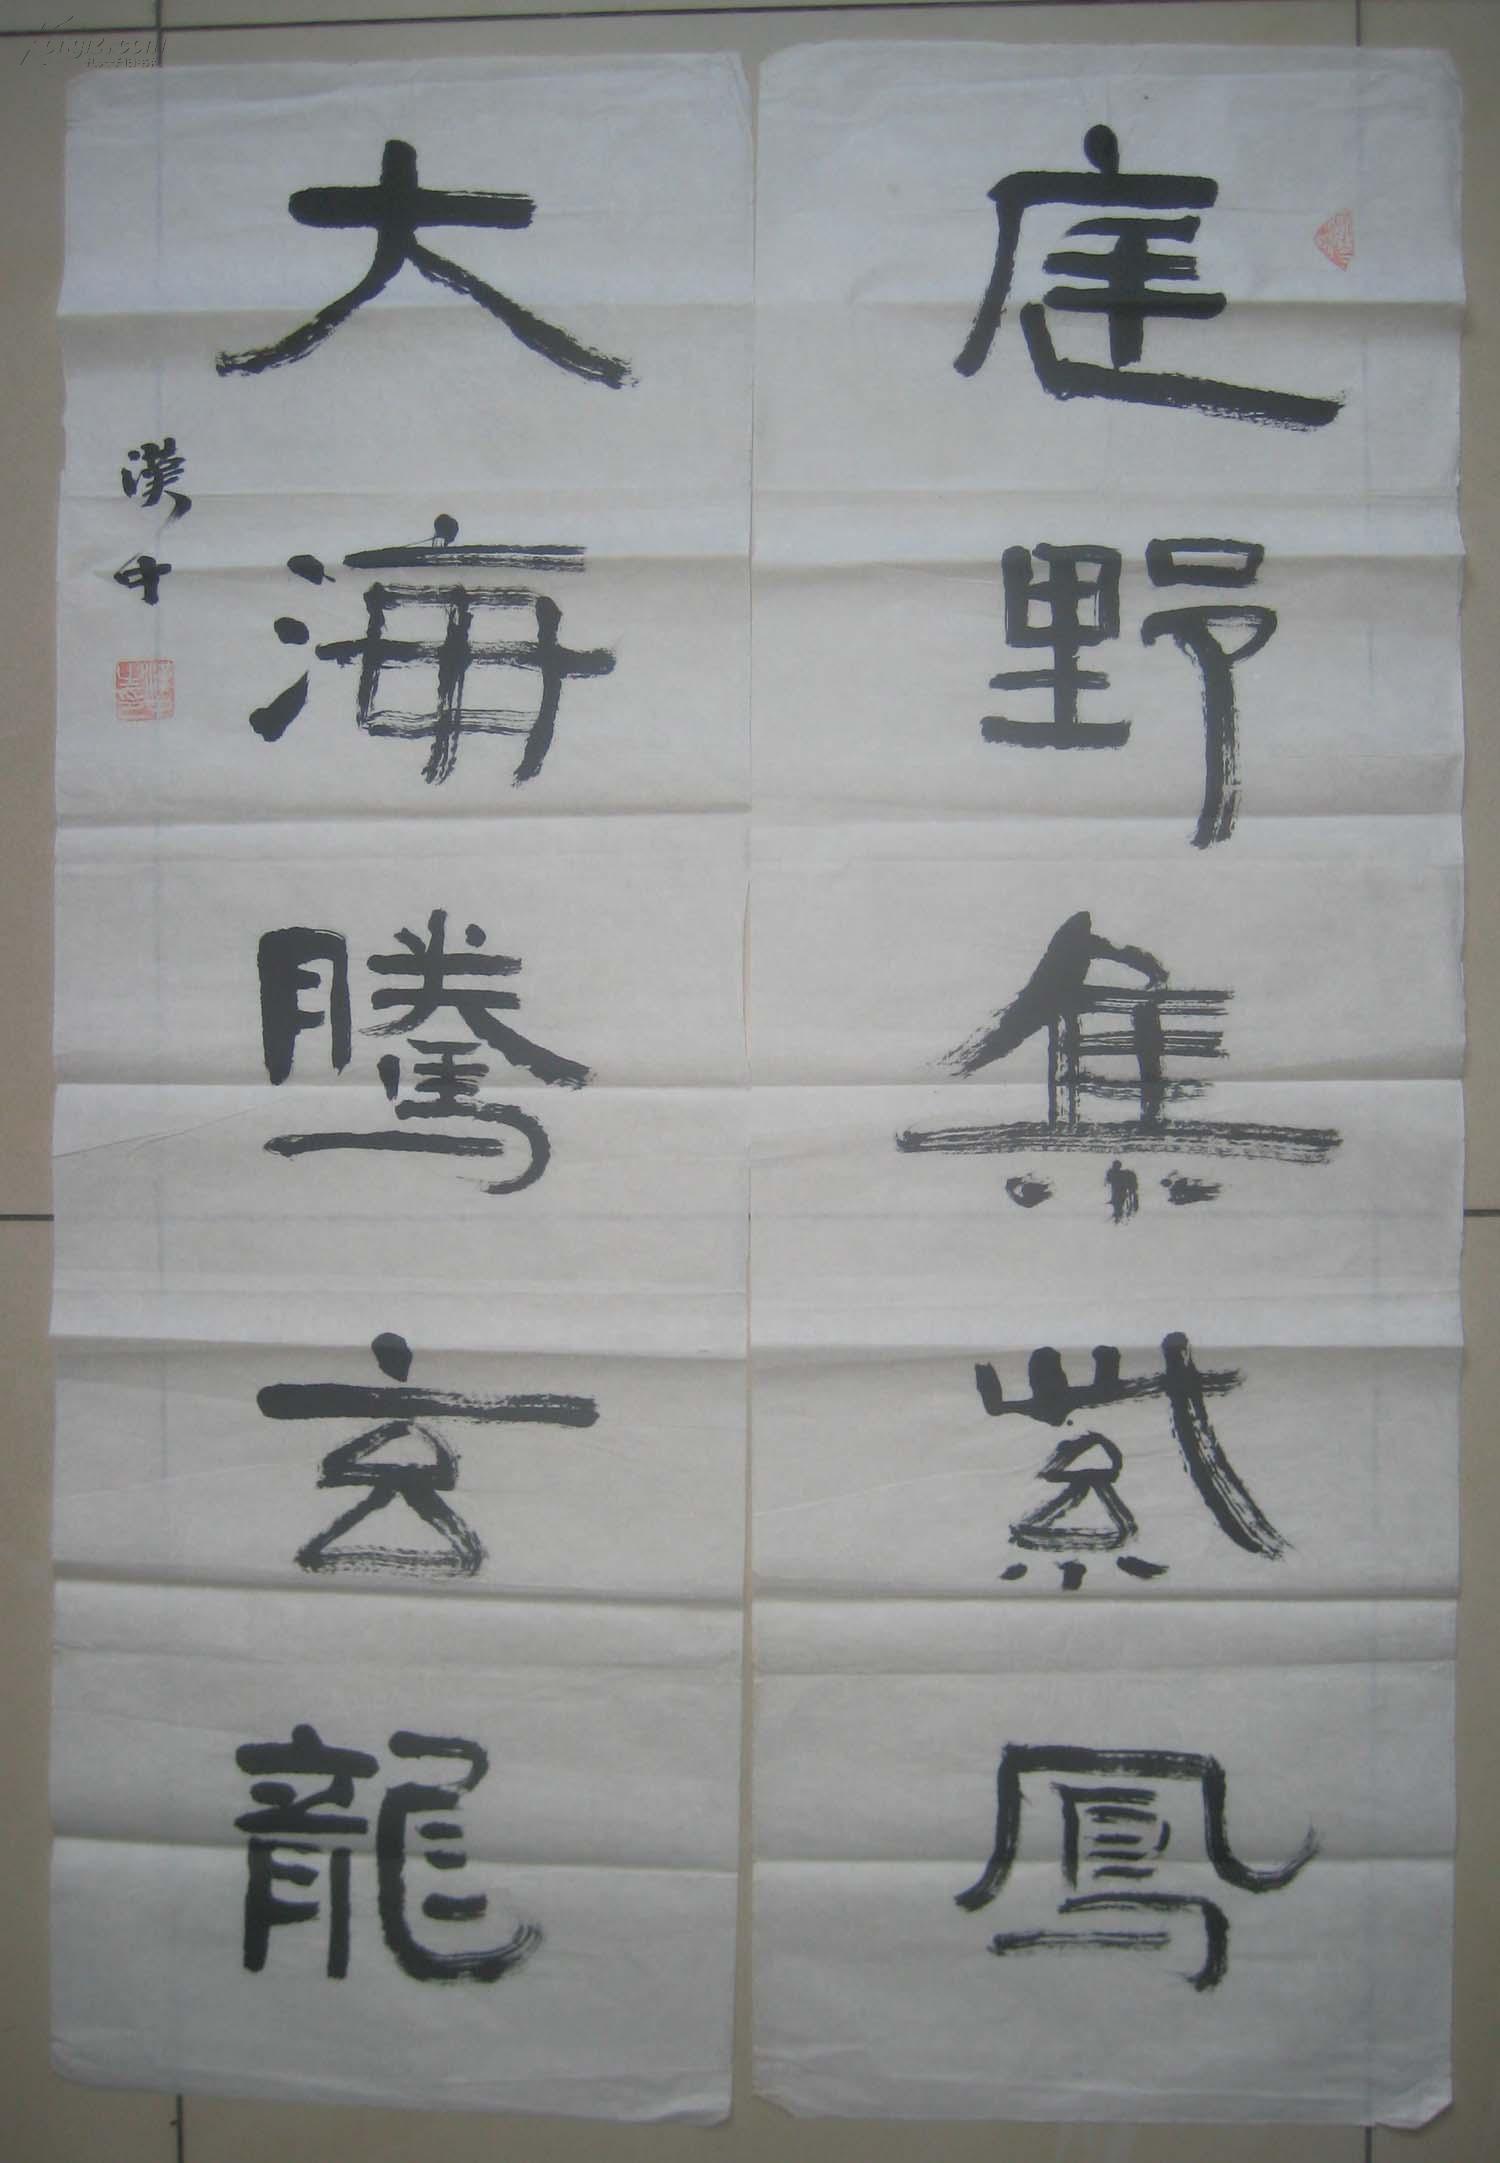 庭野集紫鳳
大海騰玄龍
漢中